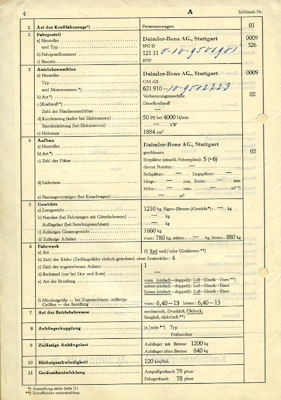 4 A Schlüssel-Nr.
1 Art des Kraftfahrzeugs*) Personenwagen 01
2 Fahrgestell
a) Hersteller Daimler-Benz AG., Stuttgart 0009
und Typ 190 D 326
b) Fahrgestellnummer 121 11
c) Baujahr 1959
3 Antriebsmaschine
a) Hersteller Daimler-Benz AG., Stuttgart 0009
und Typ OM 621
und Motornummer*) 621 910
b) Art*) Verbrennungsmaschine 02
c) (Kraftstoff*) Dieselkraftstoff
d) Nutzleistung (außer bei Elektromotor) 50 PS bei 4000 U/min
Stundenleistung (bei Elektromotor) — kW
e) Hubraum 1884 cm³
4 Aufbau
a) Hersteller Daimler-Benz AG., Stuttgart
b) Art*) geschlossen 02
c) Zahl der Plätze Sitzplätze (einschl. Führerplatz): 5 (+6)
davon Notsitze: —
Stehplätze: — Liegeplätze: —
d) Laderaum Länge: — mm, Breite: — mm
Höhe: — mm, — m²
e) Fassungsvermögen (bei Kesselwagen) —
5 Gewichte
a) Leergewicht 1210 kg
b) Nutzlast (bei Fahrzeugen mit Güterladeraum) — kg
Aufliegelast (bei Sattelzugmaschinen) — kg
c) Zulässiges Gesamtgewicht 1660 kg
d) Zulässige Achslast vorn: 780 kg, mitten: — kg, hinten: 880 kg
6 Fahrwerk
a) Art Rad und/oder Gleisketten**)
b) Zahl der Räder (Zwillingsräder einfach gerechnet) ohne Ersatzräder: 4
c) Zahl der angetriebenen Achsen 1
d) Radstand
e) Art der Bereifung
vorn: 6,40—13 hinten: 6,40—13
7 Art der Betriebsbremse mechanisch, Druckluft, Öldruck,
8 Anhängerkupplung ja/nein**) Typ
Prüfzeichen
9 Zulässige Anhängelast Anhänger mit Bremse 1200 kg
Anhänger ohne Bremse 640 kg
10 Höchstgeschwindigkeit 120 km/Std.
11 Geräuschentwicklung Auspuffgeräusch 79 phon
Fahrgeräusch 78 phon
*) Anmerkung siehe Seite 11.
**) Zutreffendes unterstreichen.